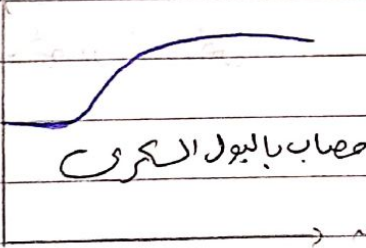 مصاب بالبول السكرى